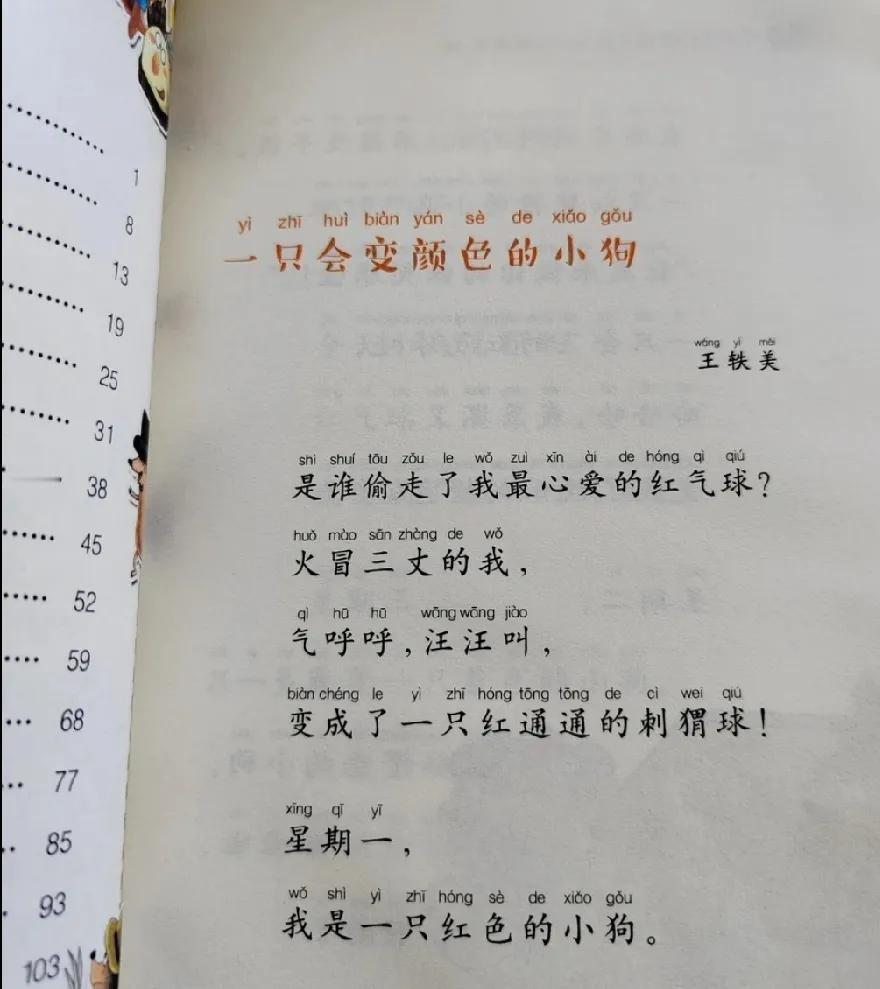 1
8
13
19
25
31
38
45
52
59
68
77
85
93
103
yì zhī huì biàn yán sè de xiǎo gǒu
一只会变颜色的小狗
wáng yì měi
王轶美
shì shuí tōu zǒu le wǒ zuì xīn ài de hóng qì qiú
是谁偷走了我最心爱的红气球？
huǒ mào sān zhàng de wǒ
火冒三丈的我，
qì hū hū wāng wāng jiào
气呼呼，汪汪叫，
biàn chéng le yì zhī hóng tōng tōng de cì wei qiú
变成了一只红通通的刺猬球！
xīng qī yī
星期一，
wǒ shì yì zhī hóng sè de xiǎo gǒu
我是一只红色的小狗。